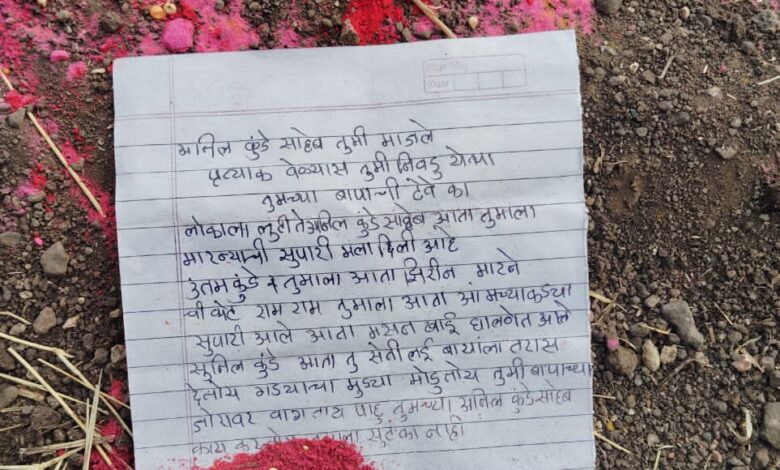 अनिल कुंडे साहेब तुमी माजले
प्रत्याक वेळ्यास तुमी निवडु येत्या
तुमच्या बापाची ठेवे का
लोकाला लुटीते अनिल कुंडे साहेब आता तुमाला
मारन्याची सुपारी मला दिली आहे
उतम कुंडे तुमाला आता मारने
राम राम तुमाला आता आमच्याकडया
सुपारी आले आता मसन खाई घालनेत आले
सुनिल कुंडे आता तु सेती लई बायांला तरास
देतोय गडयाच्या मुडया मोडुतोय तुमी बापाच्या
जोरावर वागताय पाहु तुमच्या अनिल कुंडे साहेब
काय सुटका नाही